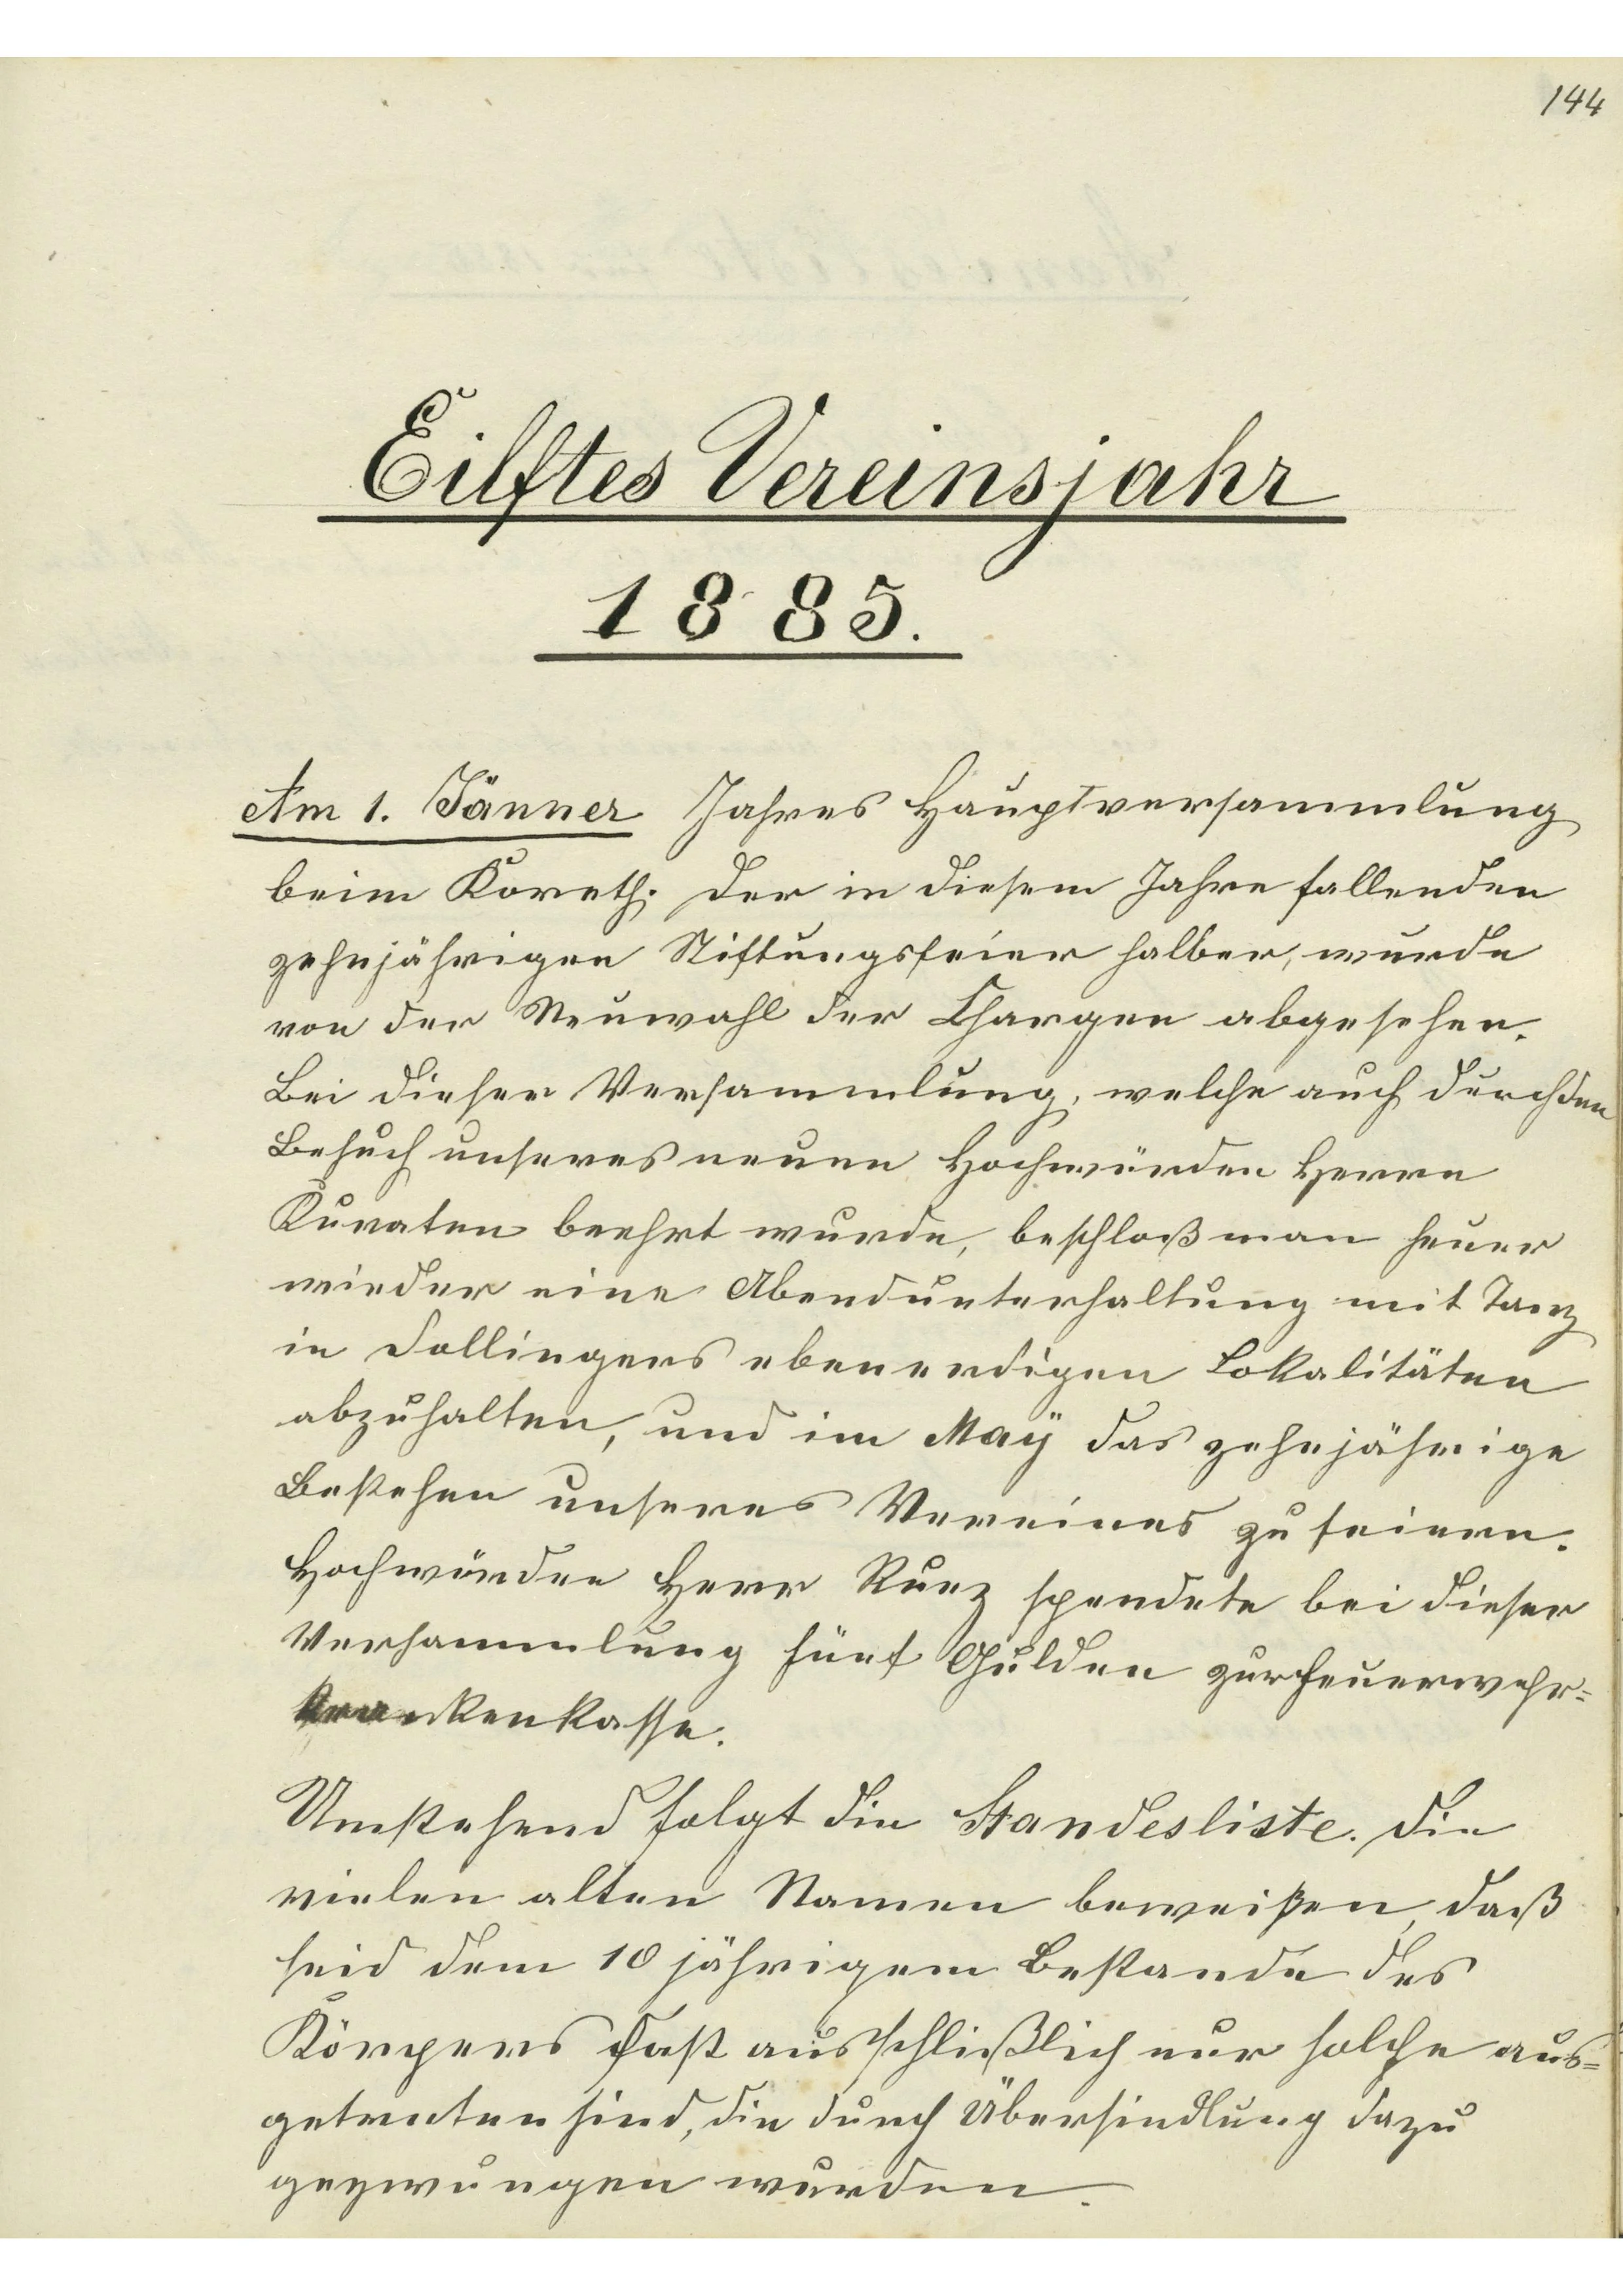 144
Eilftes Vereinsjahr
1885.
Am 1. Jänner Jahres Hauptversammlung
beim Koreth. Der in diesem Jahre fallenden
zehnjährigen Stiftungsfeier halber, wurde
von der Neuwahl der Chargen abgesehen.
Bei dieser Versammlung, welche auch durch den
Besuch unseres neuen Hochwürden Herrn
Kuraten beehrt wurde, beschloß man heuer
wieder eine Abendunterhaltung mit Tanz
in Dollingers ebenerdigen Lokalitäten
abzuhalten, und im Maÿ das zehnjährige
Bestehen unseres Vereines zu feiern.
Hochwürden Herr Ruez spendete bei dieser
Versammlung fünf Gulden zur Feuerwehr=
krankenkasse.
Umstehend folgt die Standesliste. Die
vielen alten Namen beweißen, daß
seid dem 10 jährigem Bestande des
Körpers fast ausschlißlich nur solche aus=
getreten sind, die durch Übersiedlung dazu
gezwungen wurden.